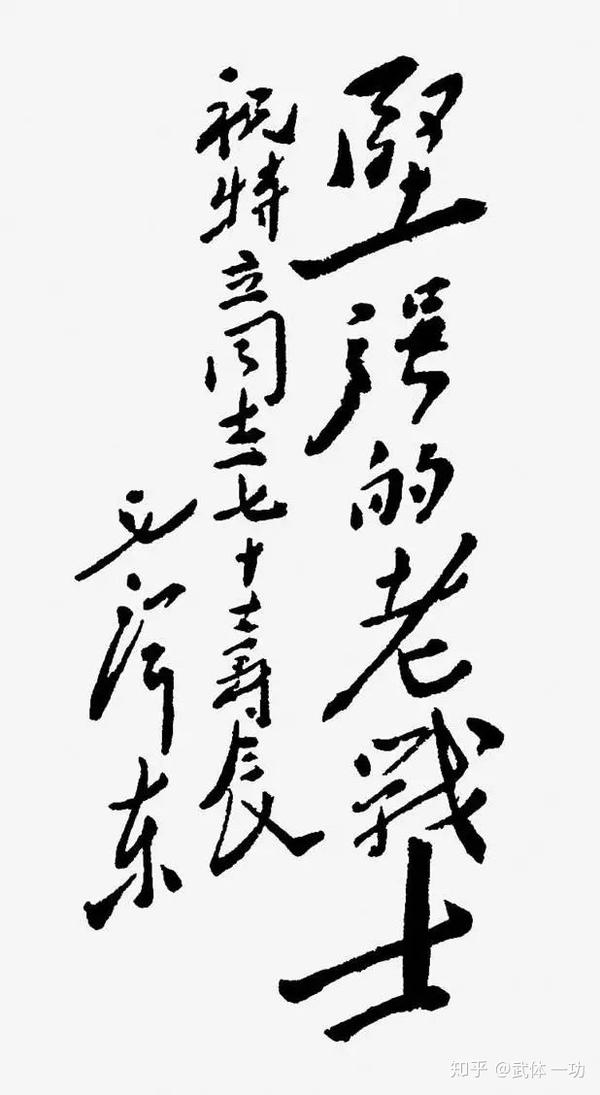 堅强的老戰士
祝特立同志七十大壽辰
毛澤东
知乎 @武体一功